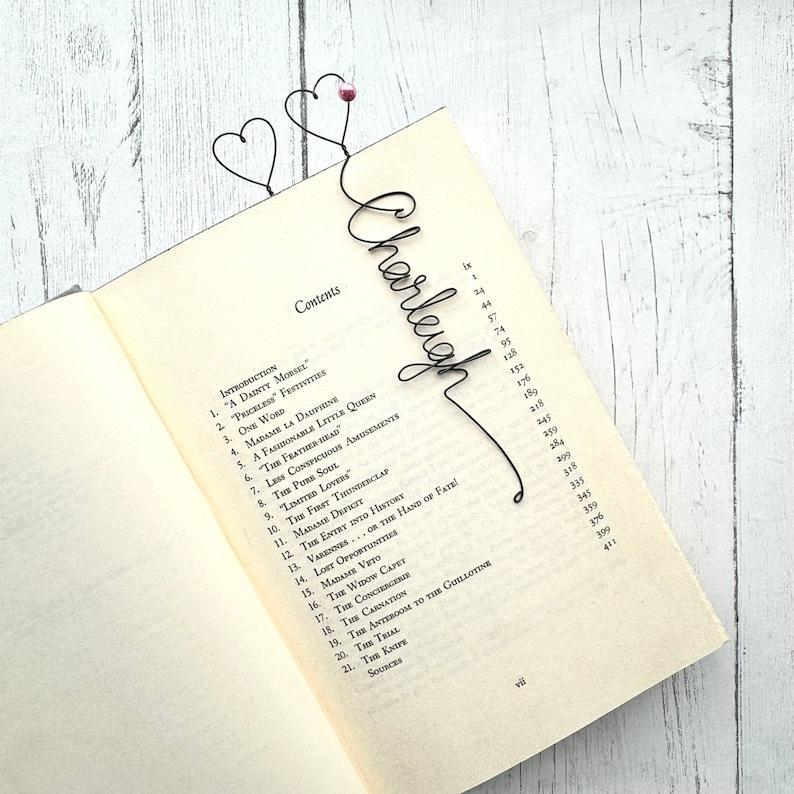 Charleigh
Contents
INTRODUCTION ix
1. "A DAINTY MORSEL" 1
2. "PRICELESS" FESTIVITIES 24
3. ONE WORD 44
4. MADAME LA DAUPHINE 57
5. A FASHIONABLE LITTLE QUEEN 74
6. "THE FEATHER-HEAD" 95
7. LESS CONSPICUOUS AMUSEMENTS 128
8. THE PURE SOUL 152
9. "LIMITED LOVERS" 176
10. THE FIRST THUNDERCLAP 189
11. MADAME DEFICIT 218
12. THE ENTRY INTO HISTORY 245
13. VARENNES . . . OR THE HAND OF FATE! 259
14. LOST OPPORTUNITIES 284
15. MADAME VETO 299
16. THE WIDOW CAPET 318
17. THE CONCIERGERIE 335
18. THE CARNATION 345
19. THE ANTEROOM TO THE GUILLOTINE 359
20. THE TRIAL 376
21. THE KNIFE 399
SOURCES 411
vii